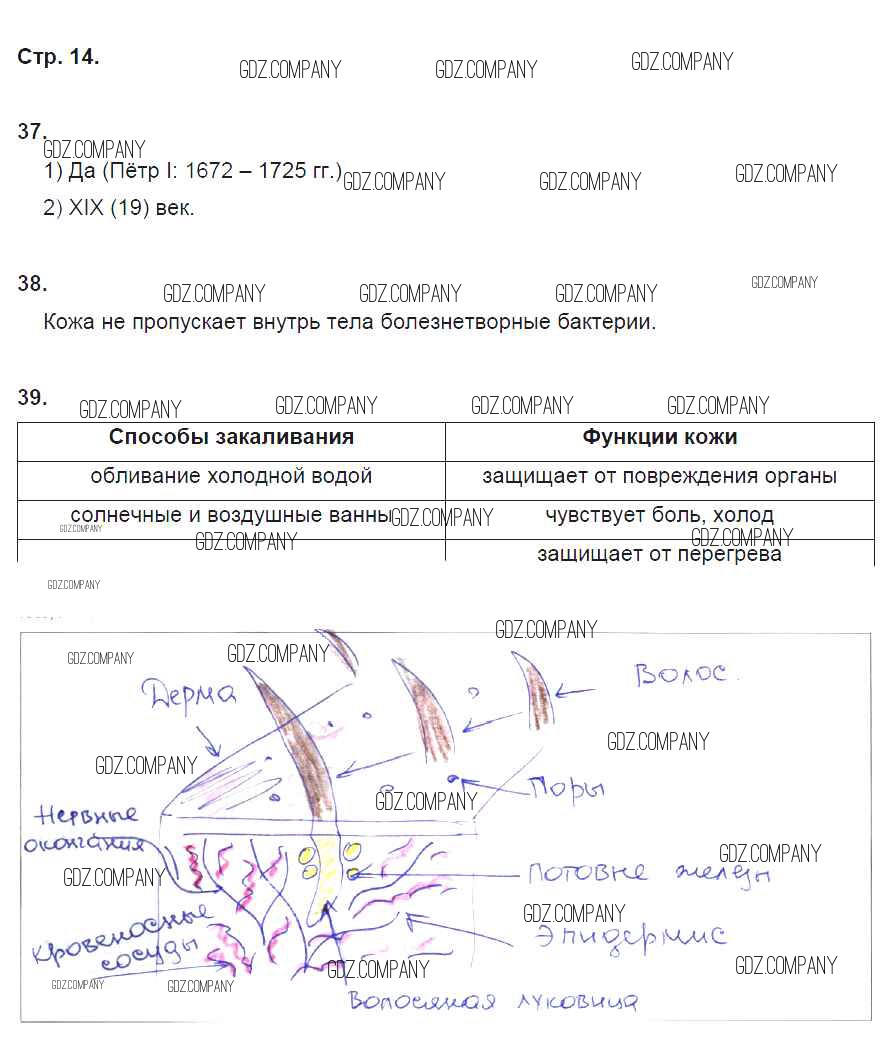 Стр. 14.
GDZ.COMPANY GDZ.COMPANY GDZ.COMPANY
37.
GDZ.COMPANY
1) Да (Пётр I: 1672 – 1725 гг.)
GDZ.COMPANY GDZ.COMPANY GDZ.COMPANY
2) XIX (19) век.
38.
GDZ.COMPANY GDZ.COMPANY GDZ.COMPANY GDZ.COMPANY
Кожа не пропускает внутрь тела болезнетворные бактерии.
39.
GDZ.COMPANY GDZ.COMPANY GDZ.COMPANY GDZ.COMPANY
Способы закаливания Функции кожи
обливание холодной водой защищает от повреждения органы
солнечные и воздушные ванны чувствует боль, холод
GDZ.COMPANY GDZ.COMPANY GDZ.COMPANY GDZ.COMPANY
защищает от перегрева
GDZ.COMPANY
GDZ.COMPANY
GDZ.COMPANY GDZ.COMPANY
Волос.
Дерма
GDZ.COMPANY
GDZ.COMPANY
Поры
GDZ.COMPANY
Нервные
окончания
GDZ.COMPANY
GDZ.COMPANY
потовые железы
GDZ.COMPANY
кровеносные
сосуды
Эпидермис
GDZ.COMPANY GDZ.COMPANY
GDZ.COMPANY GDZ.COMPANY
Волосяная луковица